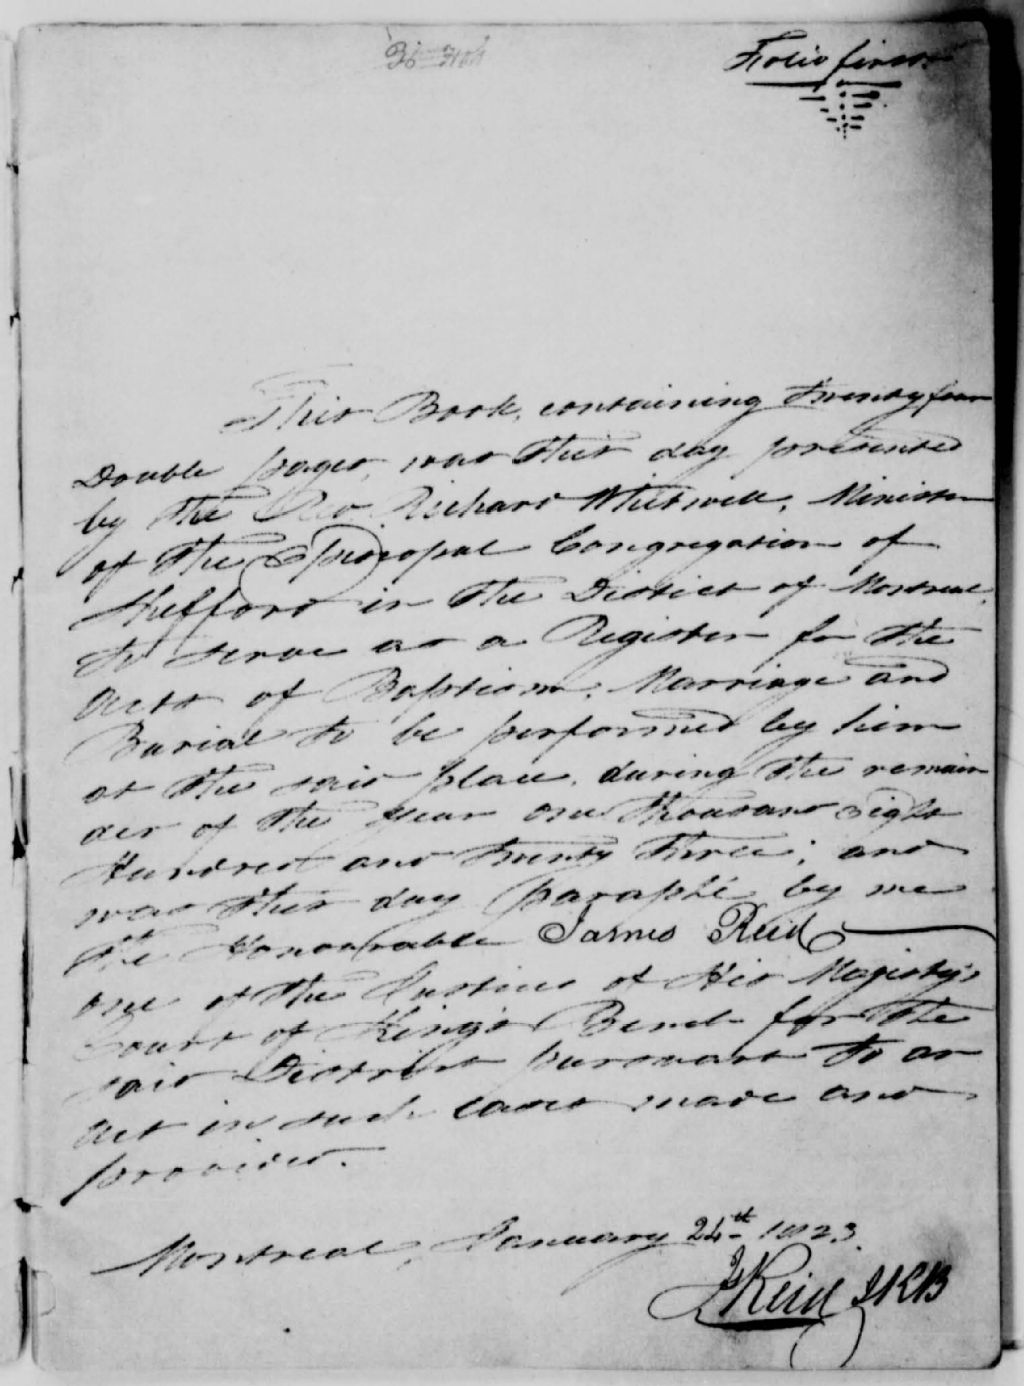 Folio first.
This Book, containing Twenty four
Double pages, was this day presented
by the Rev. Richard Whitwell, Minister
of the Episcopal Congregation of
Shefford in the District of Montreal,
to serve as a Register for the
Acts of Baptism, Marriage and
Burial to be performed by him
at the said place, during the remain
der of the year one thousand eight
Hundred and twenty three; and
was this day paraphé by me
the Honourable James Reid
one of the Justices of His Majesty's
Court of King's Bench for the
said District pursuant to an
Act in such cases made and
provided.
Montreal, January 24th 1823.
Js Reid JKB